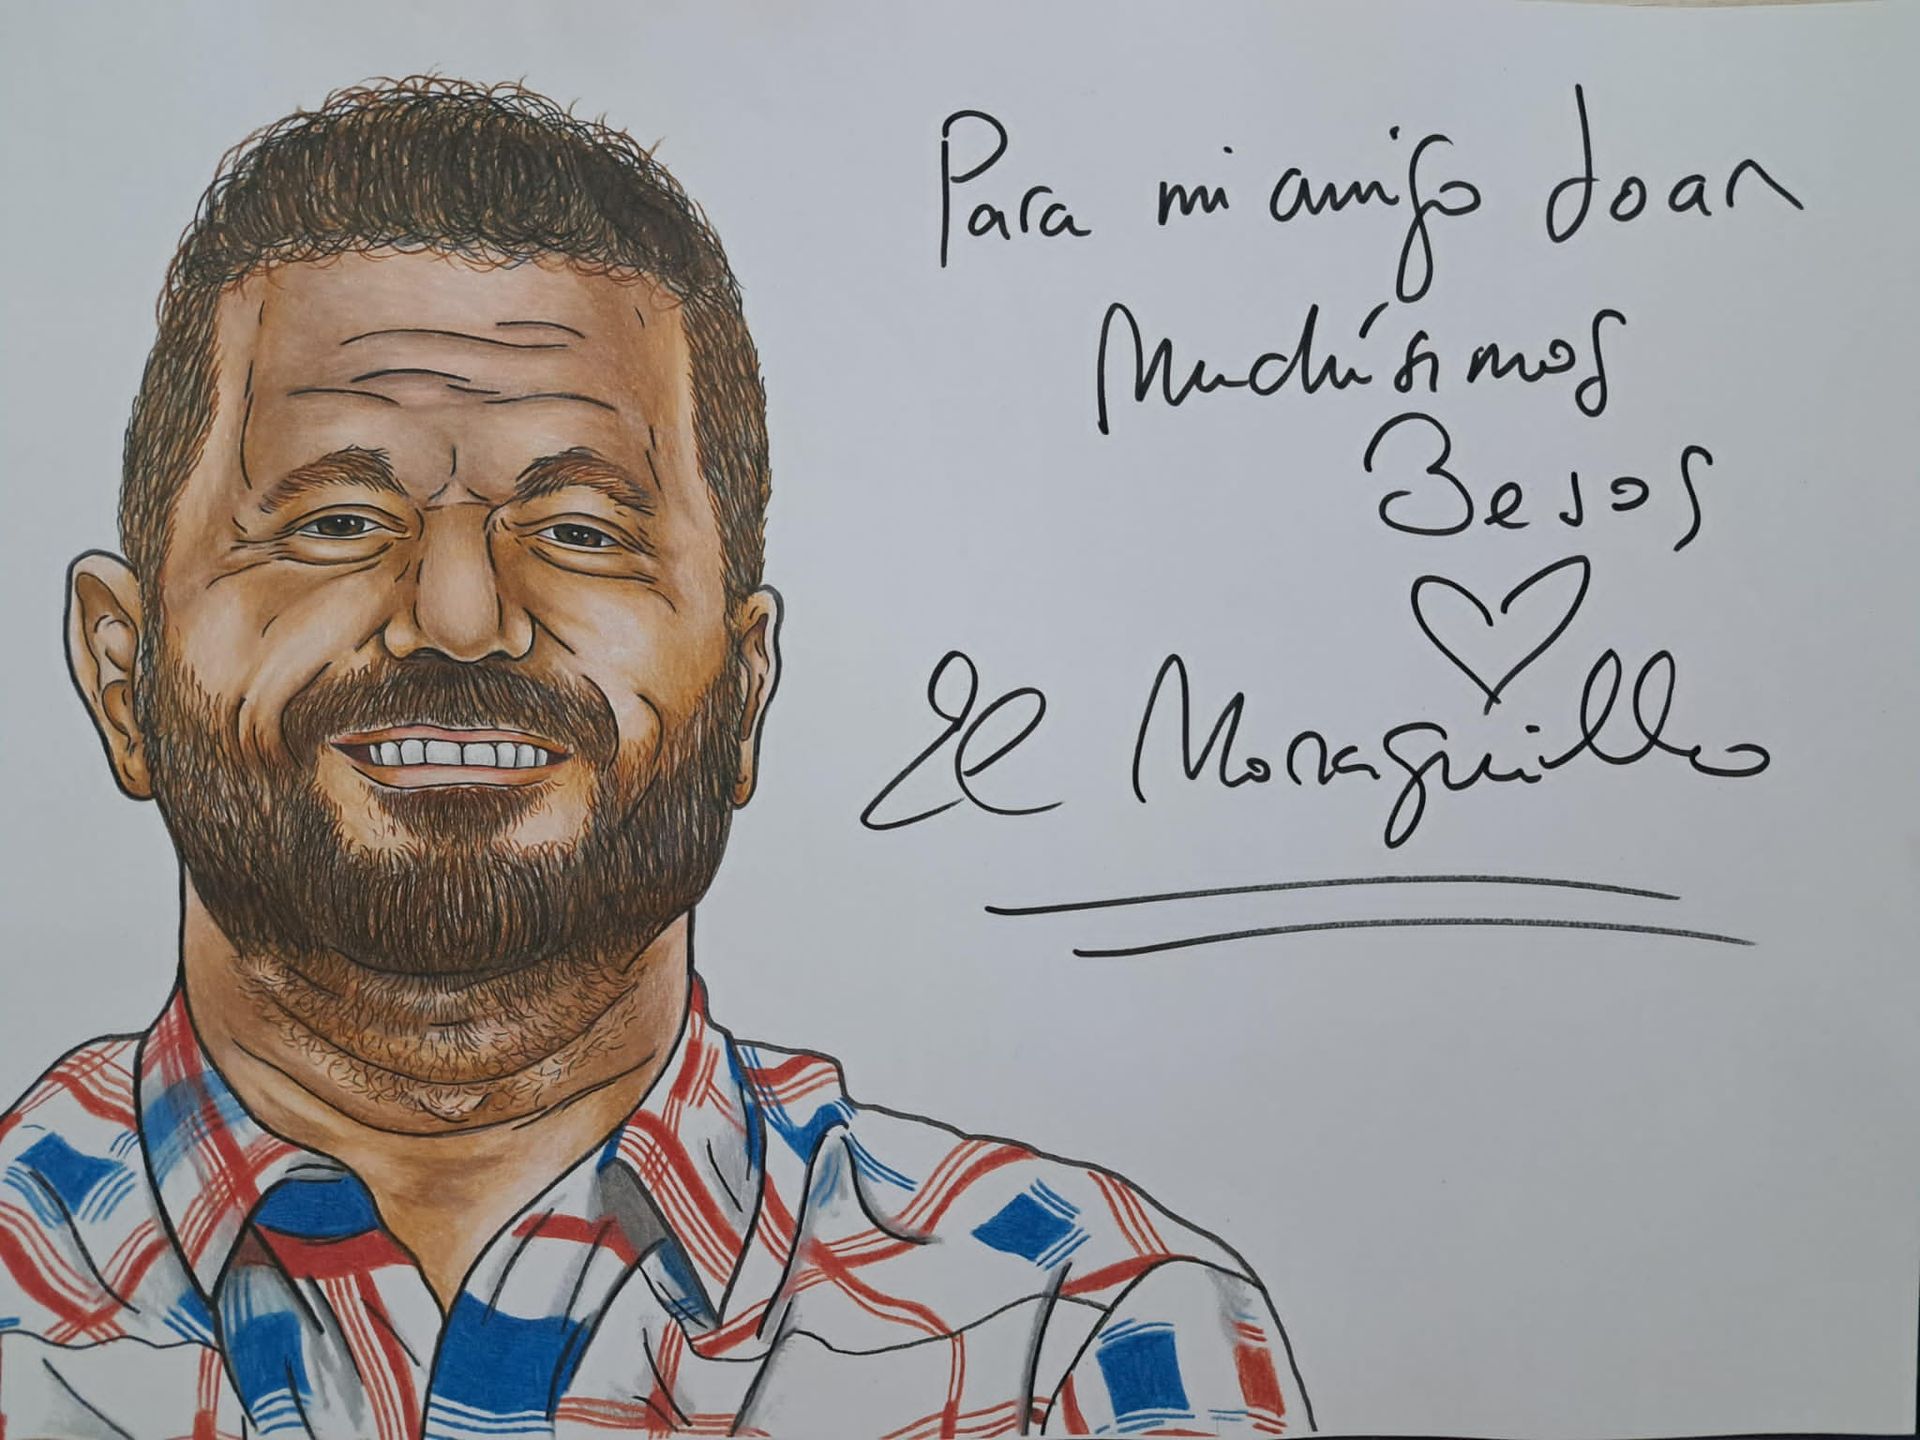 Para mi amigo Joan
Muchísimos
Besos
El Monaguillo